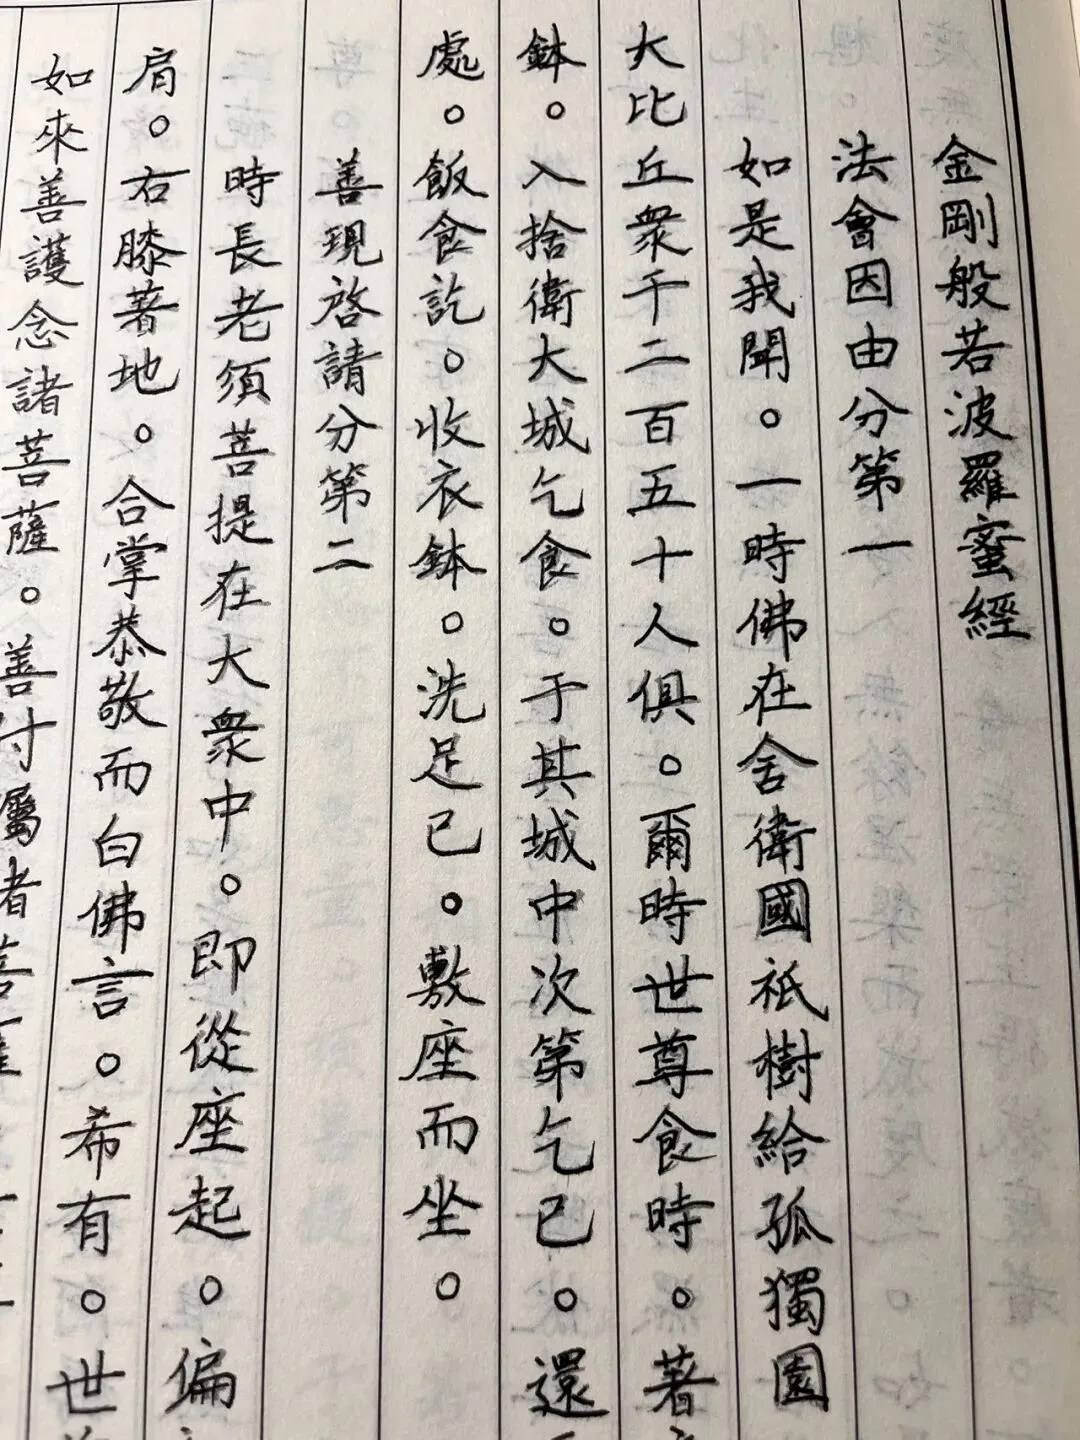 金剛般若波羅蜜經
法會因由分第一
如是我聞。一時佛在舍衛國祇樹給孤獨園
大比丘衆千二百五十人俱。爾時世尊食時。著
鉢。入捨衛大城乞食。于其城中次第乞已。還
處。飯食訖。收衣鉢。洗足已。敷座而坐。
善現啓請分第二
時長老須菩提在大衆中。即從座起。偏
肩。右膝著地。合掌恭敬而白佛言。希有。世
如來善護念諸菩薩。善付屬者菩薩